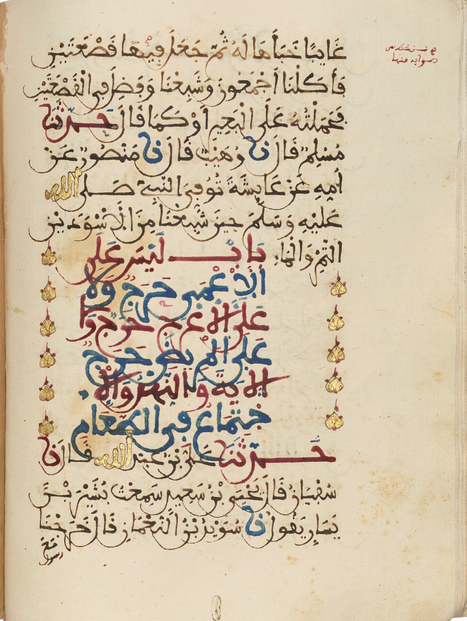 غايبا خباها له ثم جعل فيها قصعتين
فاكلنا اجمعون وشبعنا وفضل في القصعتين
فحملته على البعير او كما قال حدثنا
مسلم قال نا وهيب قال نا منصور عن
امه عن عايشة توفي النبي صلى الله
عليه وسلم حين شبعنا من الاسودين
التمر والماء
باب ليس على
الاعمى حرج ولا
على الاعرج حرج ولا
على المريض حرج
الاية والنهد والا
جتماع في الطعام
حدثنا علي بن عبد الله قال نا
سفيان قال يحيى بن سعيد سمعت بشير بن
يسار يقول نا سويد بن النعمان قال خرجنا
مع رسول